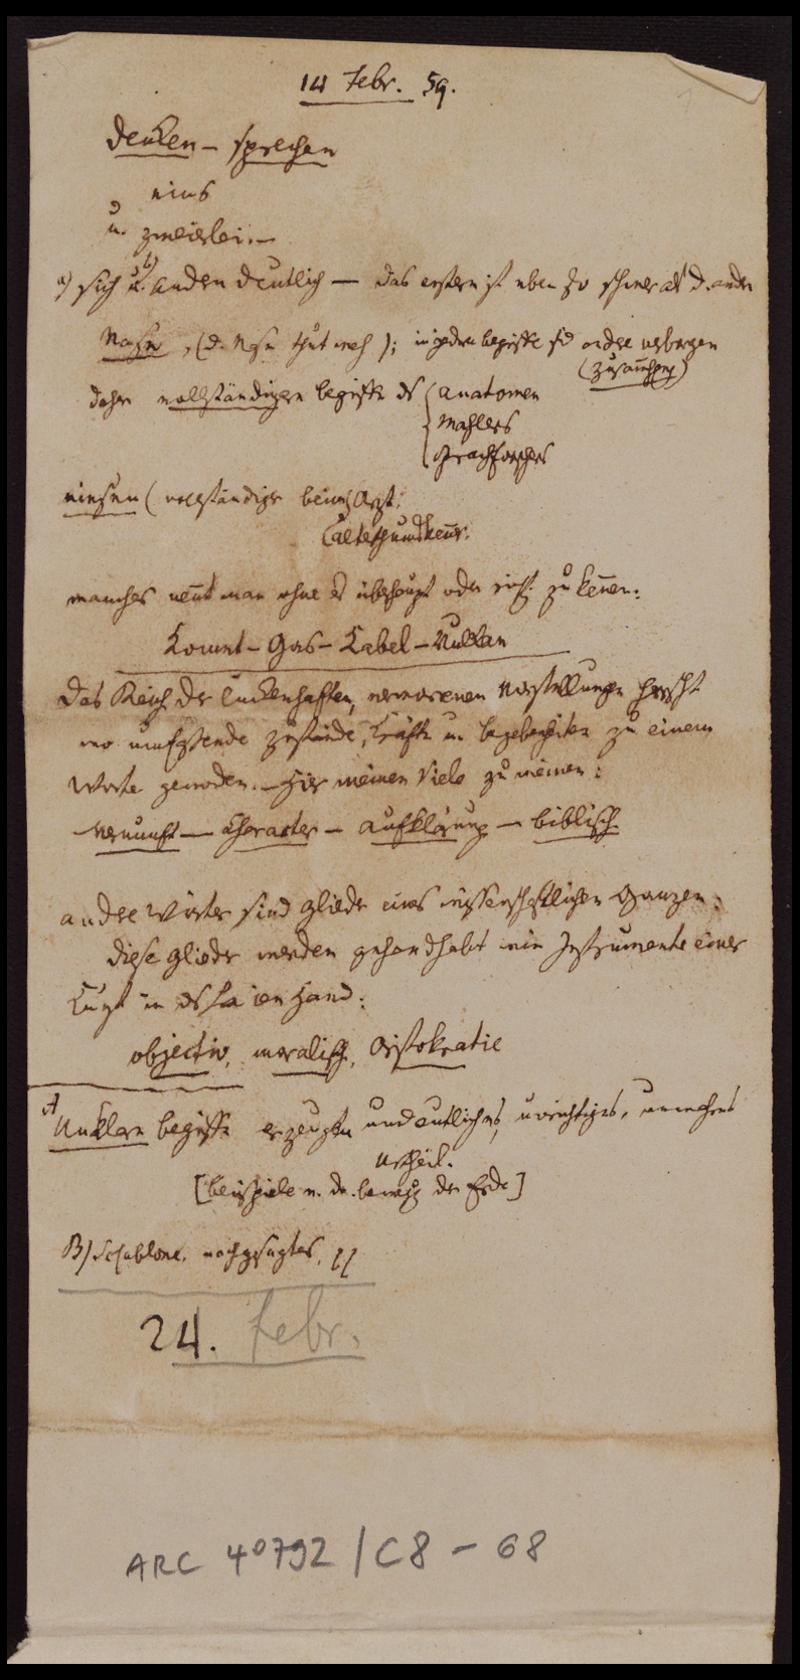 14 Febr. 59.
Denken – sprechen
eins
u. zweierlei. –
a) sich u. b) andern deutlich — das erstere ist eben so schwer als d. andere
Nase, (d. Nase thut weh); in jedem begriffe sind andere verborgen
(zusammhang)
daher vollständigere begriffe des anatomen
Mahlers
Sprachforschers
niesen (vollständiger beim Arzt.
manches nennt man ohne es überhaupt oder zu kennen:
Komet – Gas – Kabel – Vulkan
Das Reich der lückenhaften, verworrenen Vorstellungen herrscht
wo umfassende Zustände, Kräfte u. begebenheiten zu einem
Worte geworden. – Hier meinen Viele zu meinen:
Vernunft — Character – Aufklärung – biblisch.
andre Wörter sind Glieder eines wissenschaftlichen Ganzen:
diese Glieder werden gehandhabt wie Instrumente einer
Kunst in des Laien Hand:
objectiv, moralisch, Aristokratie
A) Unklare begriffe erzeugen undeutliches, unrichtiges, unwahres
Urtheil.
[beispiele v. der beweg. der Erde]
B) Schablone, nachgesagtes,
24. Febr.
ARC 40792 / C8 – 68